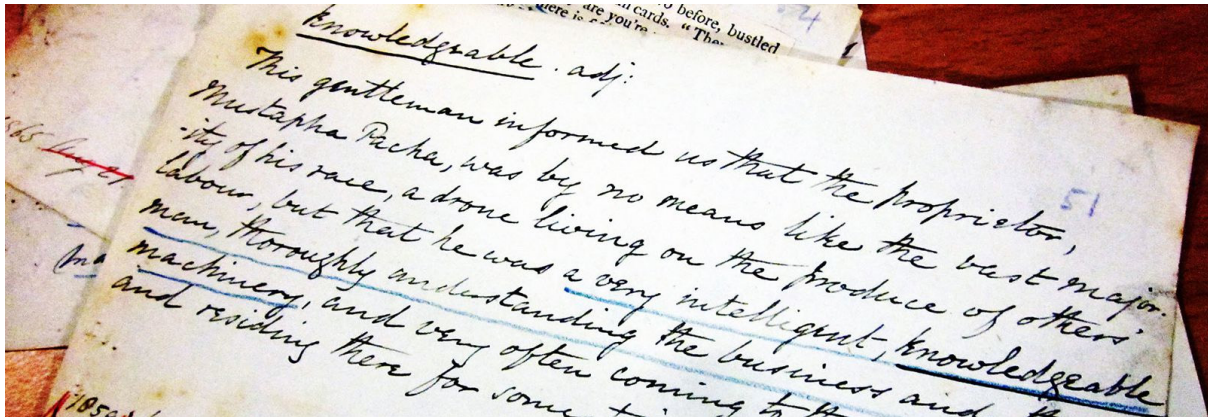 o before, bustled
n cards. "The
are you're
here is
24
knowledgeable. adj:
This gentleman informed us that the proprietor,
Mustapha Pacha, was by no means like the vast major-
-ity of his race, a drone living on the produce of others'
labour, but that he was a very intelligent, knowledgeable
man, thoroughly understanding the business and
machinery, and very often coming to
and residing there for some
51
1865 Aug 21